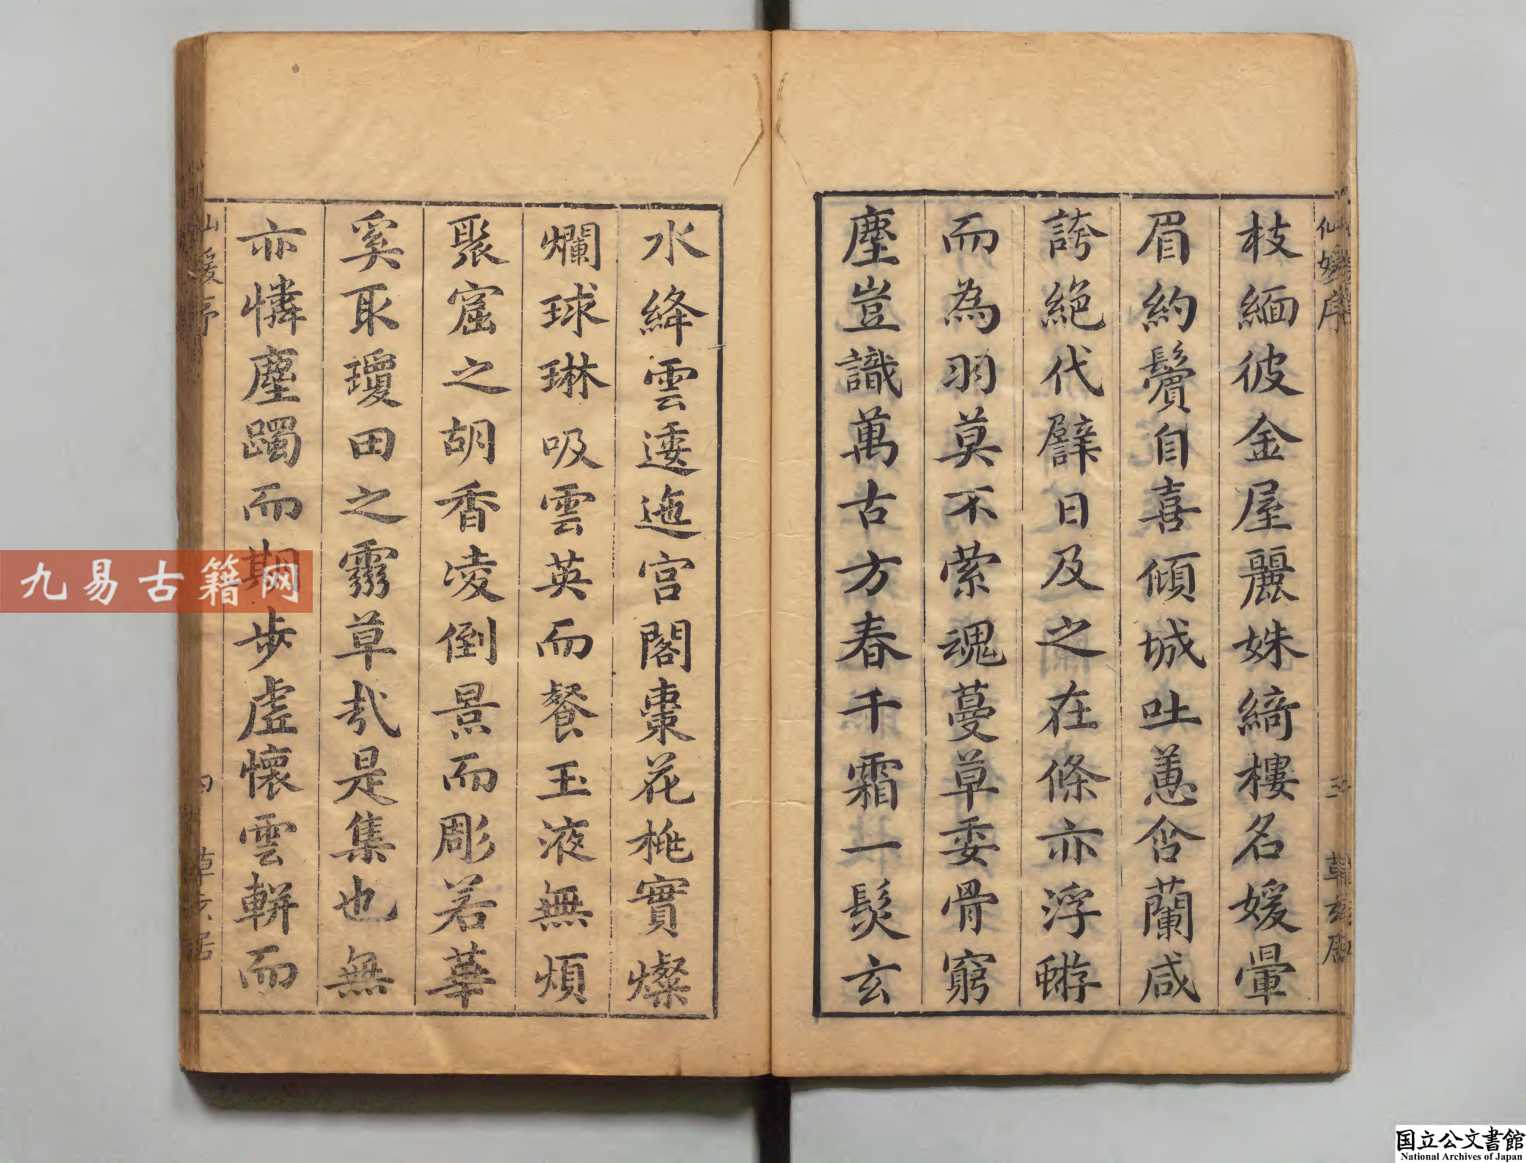 枝緬彼金屋麗姝綺樓名媛暈
眉約鬢自喜傾城吐蕙含蘭咸
誇絕代譬日及之在條亦浮蝣
而為羽莫不縈魂蔓草委骨窮
塵豈識萬古方春千霜一髮玄
水絳雲逶迤宮閣棗花桃實燦
爛球琳吸雲英而餐玉液無煩
聚窟之胡香凌倒景而彫若華
奚取瓊田之靈草哉是集也無
亦憐塵躅而期步虛懷雲輧而
仙媛序
三
草玄居
仙媛序
草玄居
九易古籍网
国立公文書館
National Archives of Japan